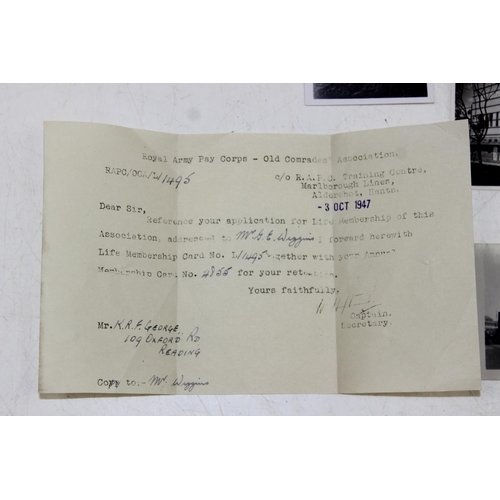 Royal Army Pay Corps - Old Comrades' Association.
RAPC/OCA/L/1495
c/o R.A.P.C. Training Centre,
Marlborough Lines,
Aldershot, Hants.
-3 OCT 1947
Dear Sir,
Reference your application for Life Membership of this
Association, addressed to Mr G.E. Wiggins I forward herewith
Life Membership Card No. L/1495 together with your Annual
Membership Card No. 4855 for your retention.
Yours faithfully,
Captain.
Secretary.
Mr. K.R.F. GEORGE,
109 OXFORD RD
READING
Copy to:- Mr Wiggins